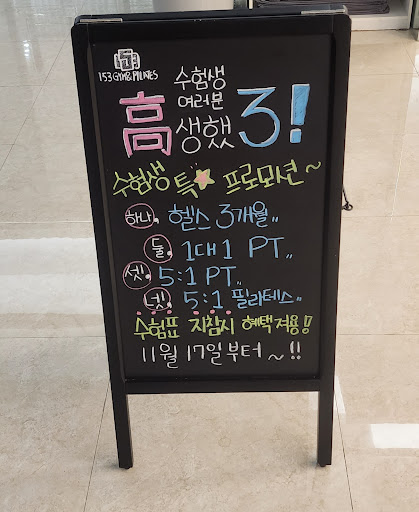 153 GYM & PILATES
수험생
여러분
高생했3!
수험생 특★ 프로모션~
하나, 헬스 3개월,,
둘, 1대1 PT,,
셋, 5:1 PT,,
넷, 5:1 필라테스,,
수험표 지참시 혜택적용!
11월 17일부터~!!